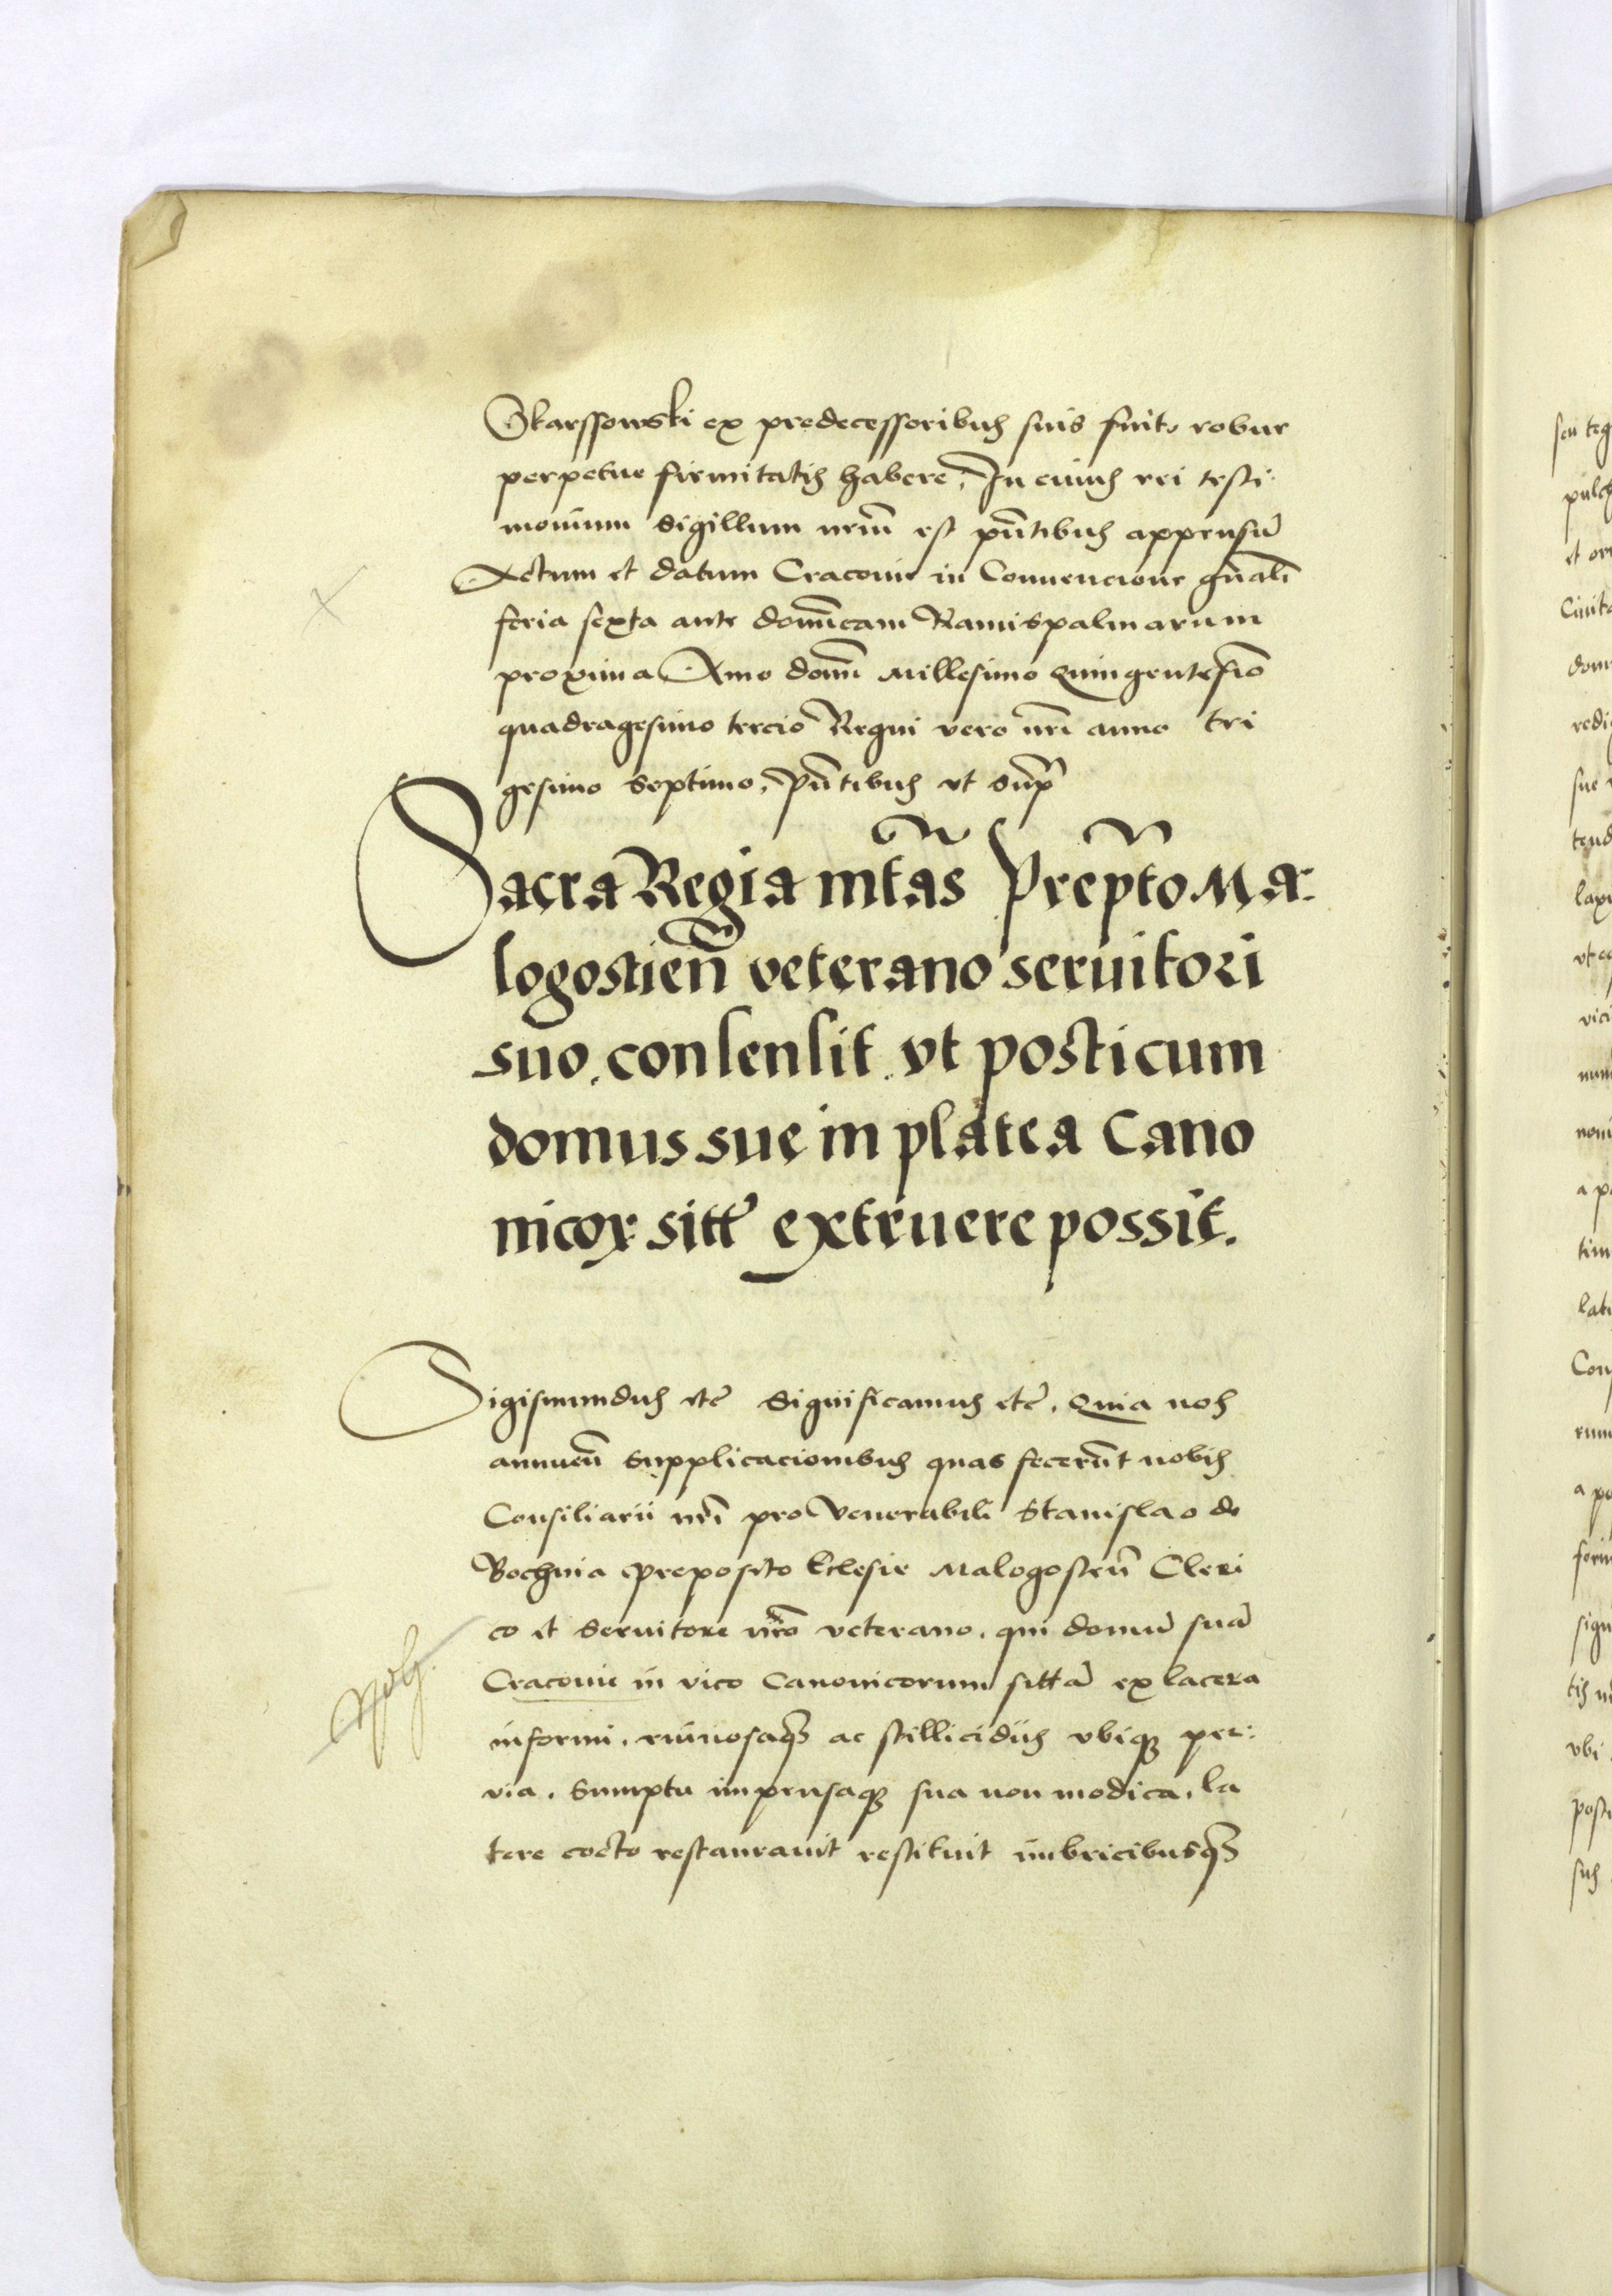 Skarssowski ex predecessoribus suis fuit, robur
perpetue firmitatis habere, In cuius rei testi:
monium sigillum nrm̄ est pn̄tibus appensū
Actum et datum Cracovie in Convencione gn̄ali
feria sexta ante domīcam Ramispalmarum
proxima Anno domī Millesimo Quingentesīo
quadragesimo tercio Regni vero nrī anno tri
gesimo septimo, Pn̄tibus vt sup̄
Sacra Regia mtās Prepto Ma:
logostien̄ veterano servitori
suo, consensit vt posticum
domus sue in platea Cano
nicoꝝ sitē extruere possit.
Sigismundus etē significamus etē, Quia nos
annuen̄ supplicacionibus quas fecerūt nobis
Consiliarii nrī pro Venerabili Stanislao de
Bochnia preposito Eclesie Malogosten̄ Cleri
co et servitore nrō veterano, qui domū suā
Cracovie in vico Canonicorum sittā ex lacera
informi, ruinosaqꝫ ac stillicidiis vbiqꝫ per:
via, sumptu impensaqꝫ sua non modica, la
tere cocto restauravit restituit imbricibusqꝫ